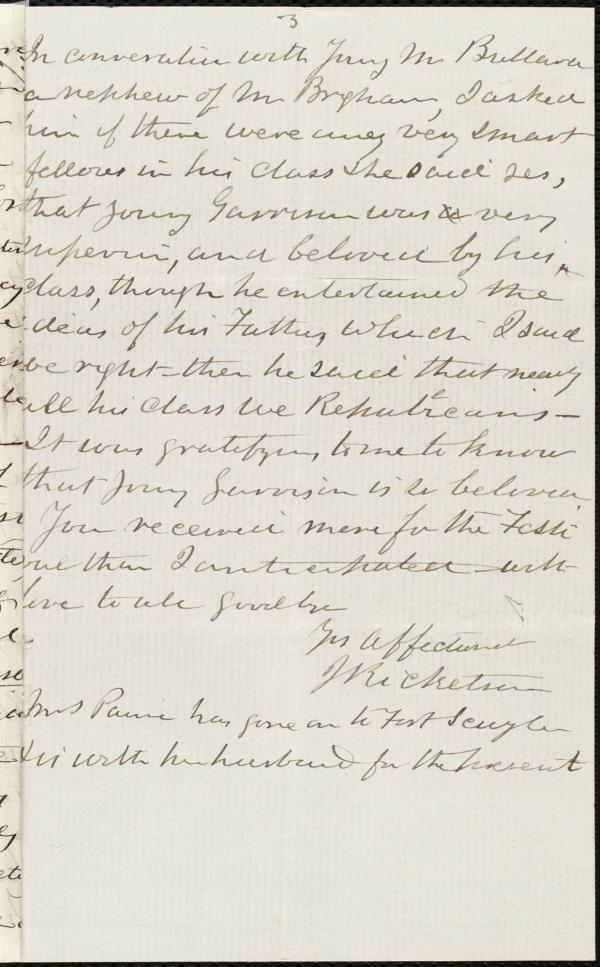 3
In converation with Young Mr Bullard
a nephew of Mr Brgham, I asked
him if there were any very smart
fellows in his class & he said yes,
that young Garrison was a very
superior, and beloved by his
class, though he entertained the
ideas of his Father, which I said
be right - then he said that nearly
all his class we Republicans -
It was gratifying to me to know
that young Garrison is so beloved
You received more for the Festi
val than I anticipated - with
love to all goodbye
Yrs affectionat
J Ricketson
Mrs has gone on to Fort Scuyler
& is with her husband for the present